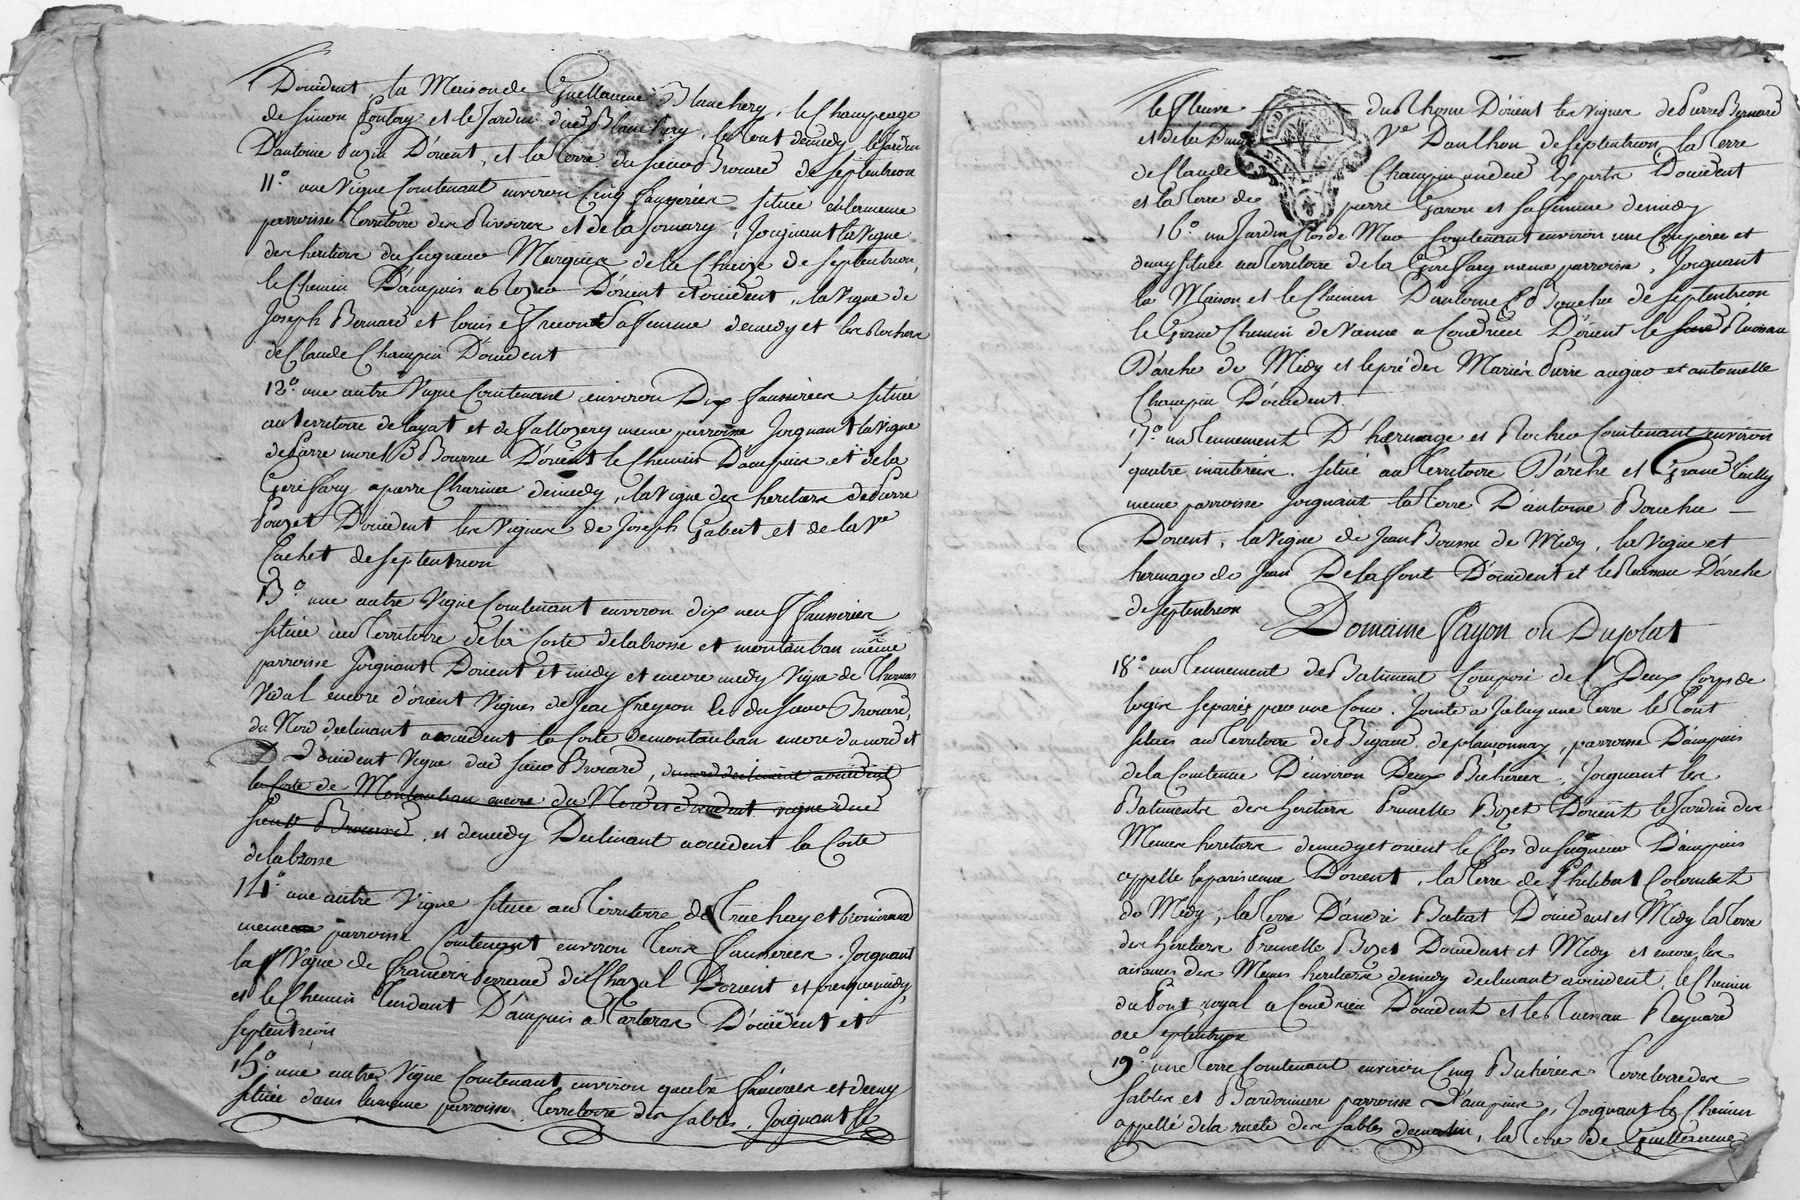 Doccident, la Maison de Guellaume Blanchery, le Champeage
de Simon Contory et le Jardin dud Blanchery, le tout demidy, le Jardin
D'antoine Puzin D'orient, et la terre du sieur Brocard de septentrion
11.° une Vigne Contenant environ Cinq fausserées située enlameme
parroisse territoire des Rivoirex et de la fornary, Joignant la Vigne
des heritiers du seigneur Marquis de la Cheize de septentrion,
le Chemin D'ampuis a Rozeo D'orient et occident, la Vigne de
Joseph Bernard et louis effreon sa femme demidy et les Rochers
de Claude Champin D'occident
12.° une autre Vigne Contenant environ Dix fausserées située
au territoire de layat et de Vallozery meme parroisse Joignant la Vigne
de Pierre morel Bourru D'orient le Chemin D'ampuis et de la
Gerefary a pierre Charmer demidy, la Vigne des heritiers de Pierre
Pouzet Doccident les Vignes de Joseph Gabert et de la Ve
Cachet de septentrion
13.° une autre Vigne Contenant environ dix neuf fausserées
située au territoire de la Coste de labrosse et montauban meme
parroisse Joignant Dorient et midy et encore midy Vigne de Thomas
Vidal encore d'orient Vignes de Jean freyeon & du sieur Brocard,
du Nord declinant a occident la Coste de montauban encore du nord et
D'occident Vigne dud sieur Brocard, du nord declinant a occident
la Coste de Montauban encore du Nord et occident vigne dud
sieur Brocard, et demidy Declinant a occident la Coste
de labrosse
14.° une autre Vigne située au territoire de truchery et
meme parroisse Contenant environ trois fausserées. Joignant
la Vigne de francois Bernard dit Chazal Dorient et presque midy,
et le Chemin tendant D'ampuis a tartaras D'occident et
septentrion
15.° une autre Vigne Contenant environ quatre fausserées et demy
située dans la meme parroisse territoire des sables, Joignant le
le fleuve du Rhone D'orient les Vignes de Pierre Bernard
et de la Dame Ve Daulhon de septentrion la terre
de Claude Champin Doccident
et la terre de pierre Garon et sa femme demidy
16.° un Jardin Clos de Mur Contenant environ une Couperée et
demy située au territoire de la Gerefary meme parroisse, Joignant
la Maison et le Chemin D'antoine Bouchu de septentrion
le Grand Chemin de Vienne a Condrieu D'orient le Ruisseau
D'arche de Midy et le pré des Mariés Pierre augier et antoinette
Champin D'occident
17.° un tennement D'hermage et Rocher Contenant environ
quatre meiterées. situé au territoire D'arche et Grand tailly
meme parroisse Joignant la terre D'antoine Bouchu
Dorient, la Vigne de Jean Boussu de Midy, la Vigne et
hermage de Jean Delaffont D'occident et le Ruisseau D'arche
de septentrion
Domaine fayon ou Dujolat
18.° un tennement de Batiment Composé de Deux Corps de
logis separés par une Cour. Jointe a Jceluy une terre le tout
situés au territoire de Bigaud, de planconnay, parroisse D'ampuis
de la Contenue D'environ Deux Bicherées, Joignant les
Batiments des heritiers Prunelle Bozet D'orient le Jardin des
Memes heritiers demidy et orient le Clos du seigneur D'ampuis
appellé la parisienne D'orient, la terre de Philibert Colombet
de Midy, la terre D'andré Batat D'occident et Midy la terre
des heritiers Prunelle Bozet Doccident et Midy et encore les
aisances des Memes heritiers demidy declinant a occident, le Chemin
du Pont royal a Condrieu D'occident et le Ruisseau Reynard
de septentrion
19.° une terre Contenant environ Cinq Bicherées territoire des
sables et Bardonniere parroisse D'ampuis, Joignant le Chemin
appellé de la ruete des sables dematin, la terre de Guellaume